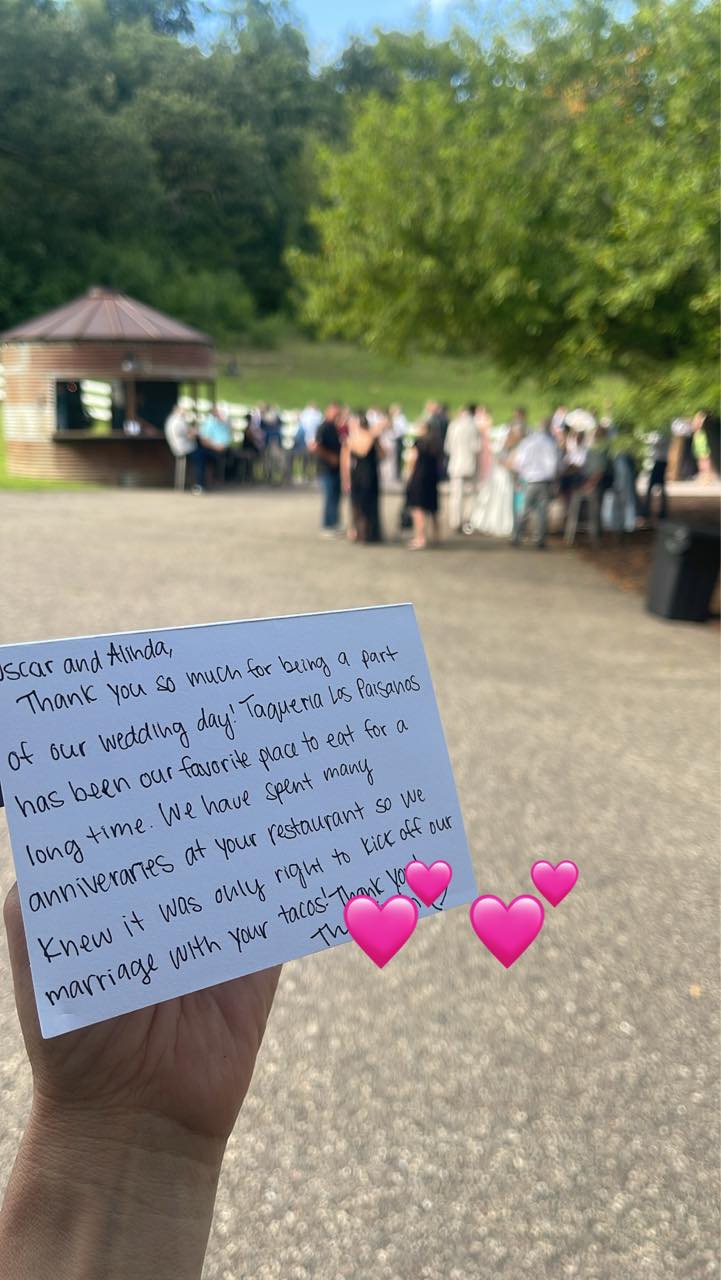 Oscar and Alinda,
Thank you so much for being a part
of our wedding day! Taqueria Los Paisanos
has been our favorite place to eat for a
long time. We have spent many
anniveraries at your restaurant so we
knew it was only right to kick off our
marriage with your tacos! Thank you!